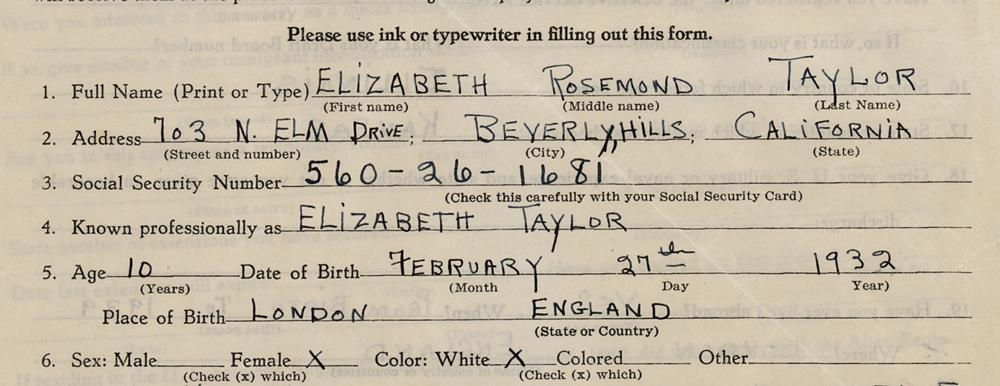 Please use ink or typewriter in filling out this form.
1. Full Name (Print or Type) ELIZABETH ROSEMOND TAYLOR
(First name) (Middle name) (Last Name)
2. Address 703 N. ELM DRIVE, BEVERLY HILLS, CALIFORNIA
(Street and number) (City) (State)
3. Social Security Number 560-26-1681
(Check this carefully with your Social Security Card)
4. Known professionally as ELIZABETH TAYLOR
5. Age 10 Date of Birth FEBRUARY 27th 1932
(Years) (Month Day Year)
Place of Birth LONDON ENGLAND
(State or Country)
6. Sex: Male Female X Color: White X Colored Other
(Check (x) which) (Check (x) which)